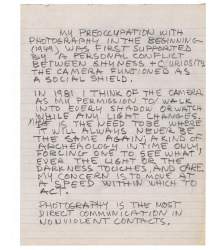 MY PREOCCUPATION WITH
PHOTOGRAPHY IN THE BEGINNING
(1949) WAS FIRST SUPPORTED
BY A PERSONAL CONFLICT
BETWEEN SHYNESS + CURIOSITY
THE CAMERA FUNCTIONED AS
A SOCIAL SHIELD.
IN 1981 I THINK OF THE CAMERA
AS MY PERMISSION TO WALK
INTO EVERY SHADOW OR WATCH
WHILE ANY LIGHT CHANGES.
IS THE NEED TO BE WHERE
IT WILL ALWAYS NEVER BE
THE SAME AGAIN, A KIND OF
ARCHAEOLOGY IN TIME ONLY
FORCING ONE TO SEE WHAT
EVER THE LIGHT OR THE
DARKNESS TOUCHES, AND CARE
MY CONCERN IS TO MOVE AT
A SPEED WITHIN WHICH TO
ACT.
PHOTOGRAPHY IS THE MOST
DIRECT COMMUNICATION IN
NONVIOLENT CONTACTS.